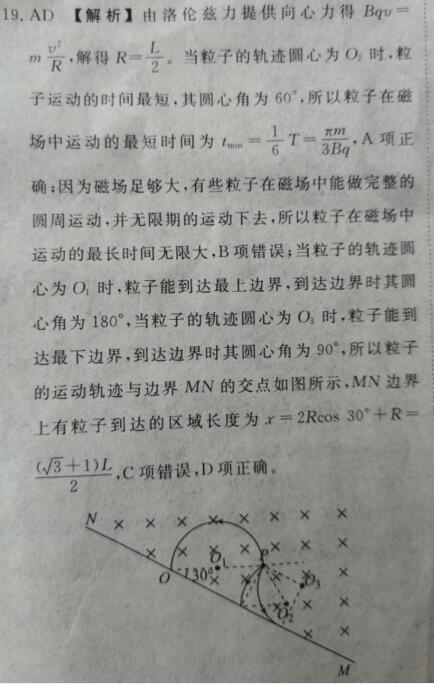 19. AD 【解析】由洛伦兹力提供向心力得 Bqv=
m v²/R,解得 R=L/2。当粒子的轨迹圆心为 O₂ 时,粒
子运动的时间最短,其圆心角为 60°,所以粒子在磁
场中运动的最短时间为 tmin=1/6 T=πm/3Bq,A 项正
确;因为磁场足够大,有些粒子在磁场中能做完整的
圆周运动,并无限期的运动下去,所以粒子在磁场中
运动的最长时间无限大,B项错误;当粒子的轨迹圆
心为 O₁ 时,粒子能到达最上边界,到达边界时其圆
心角为 180°,当粒子的轨迹圆心为 O₃ 时,粒子能到
达最下边界,到达边界时其圆心角为 90°,所以粒子
的运动轨迹与边界 MN 的交点如图所示,MN 边界
上有粒子到达的区域长度为 x=2Rcos 30°+R=
(√3+1)L/2,C 项错误,D项正确。
N
O₁ P
O 30° O₃
O₂
M